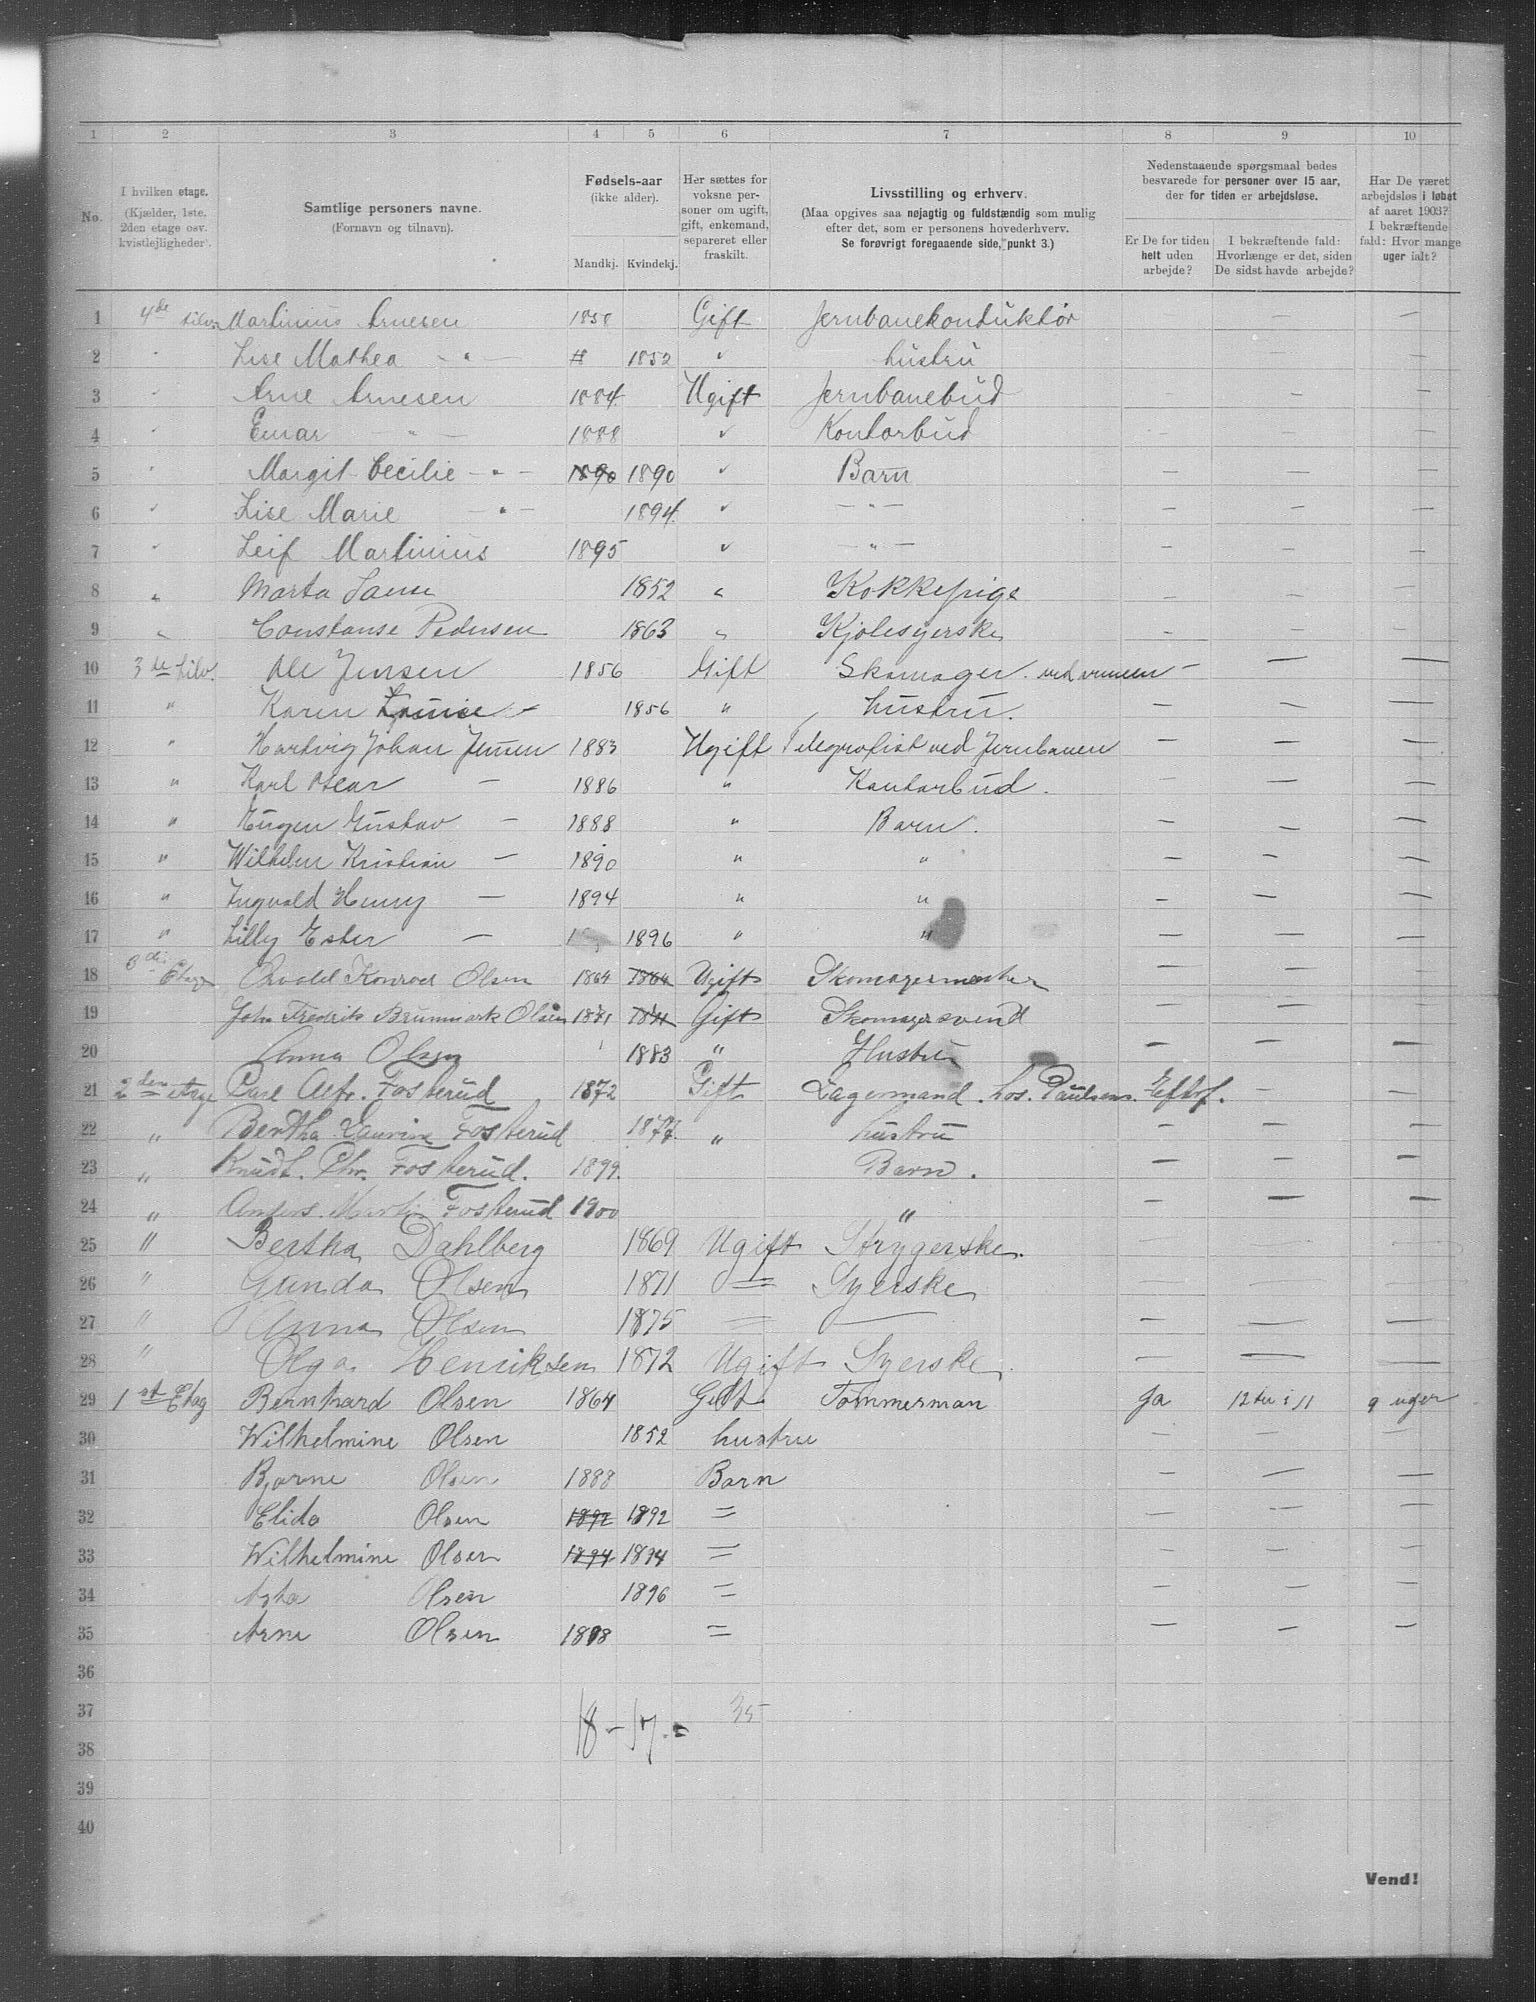 1 2 3 4 5 6 7 8 9 10
No.
I hvilken etage.
(Kjælder, 1ste.
2den etage osv.
kvistlejligheder).
Samtlige personers navne.
(Fornavn og tilnavn).
Fødsels-aar
(ikke alder).
Mandkj. Kvindekj.
Her sættes for
voksne per-
soner om ugift,
gift, enkemand,
separeret eller
fraskilt.
Livsstilling og erhverv.
(Maa opgives saa nøjagtig og fuldstændig som mulig
efter det, som er personens hovederhverv.
Se forøvrigt foregaaende side, punkt 3.)
Nedenstaaende spørgsmaal bedes
besvarede for personer over 15 aar,
der for tiden er arbejdsløse.
Er De for tiden
helt uden
arbejde?
I bekræftende fald:
Hvorlænge er det, siden
De sidst havde arbejde?
Har De været
arbejdsløs i løbet
af aaret 1903?
I bekræftende
fald: Hvor mange
uger ialt?
1 4de Martinius Arnesen 1858 Gift Jernbanekonduktör — —
2 " Lise Mathea — " — 1852 " hustru — —
3 " Arne Arnesen 1884 Ugift Jernbanebud — — —
4 " Einar — " — 1888 " Kontorbud — — —
5 " Margit Cecilie — " — 1890 1890 " Barn — — —
6 " Lise Marie — " — 1894 " — " — — — —
7 " Leif Martinius 1895 " — " — — — —
8 " Marta 1852 " Kokkepige — — —
9 " Constanse Pedersen 1863 " Kjolesyerske — — —
10 3de Ole Jensen 1856 Gift Skomager — — —
11 " Karen Louise — 1856 " hustru. — — —
12 " Hartvig Johan Jensen 1883 Ugift Telegrafist ved Jernbanen — — —
13 " Karl Oscar — 1886 " Kontorbud. — — —
14 " Eugen Gustav — 1888 " Barn. — — —
15 " Wilhelm Kristian — 1890 " " — — —
16 " Ingvald Henry — 1894 " " — — —
17 " Lilly Ester — 1896 " " — — —
18 Etage Osvald Konrad Olsen 1864 1864 Ugift Skomagermester — — —
19 John Fredrik Brummark Olsen 1871 1871 Gift Skomagersvend — — —
20 Anna Olsen 1883 " Hustru — — —
21 2den etage Carl Alfr. Fosterud 1872 Gift Lagermand. hos. Paulsens. Eftrf. — —
22 " Bertha Laurine Fosterud 1877. " hustru — — —
23 " Knudt. Chr. Fosterud. 1899. Barn. — — —
24 " Anders. Martin Fosterud 1900 " — — —
25 " Bertha Dahlberg 1869 Ugift Strygerske. — — —
26 " Gunda Olsen 1871 = Syerske — — —
27 " Anna Olsen 1875 = — — — —
28 " Olga Henriksen 1872 Ugift Syerske. — — —
29 1st Etag Bernhard Olsen 1864 Gift Tommerman Ja 9 uger
30 Wilhelmine Olsen 1852 hustru — — —
31 Bjarne Olsen 1888 Barn — — —
32 Elida Olsen 1892 1892 = — — —
33 Wilhelmine Olsen 1894 1894 = — — —
34 Olsen 1896 = — — —
35 Arne Olsen 1898 = — — —
36
37 18 – 17. = 35
38
39
40
Vend!